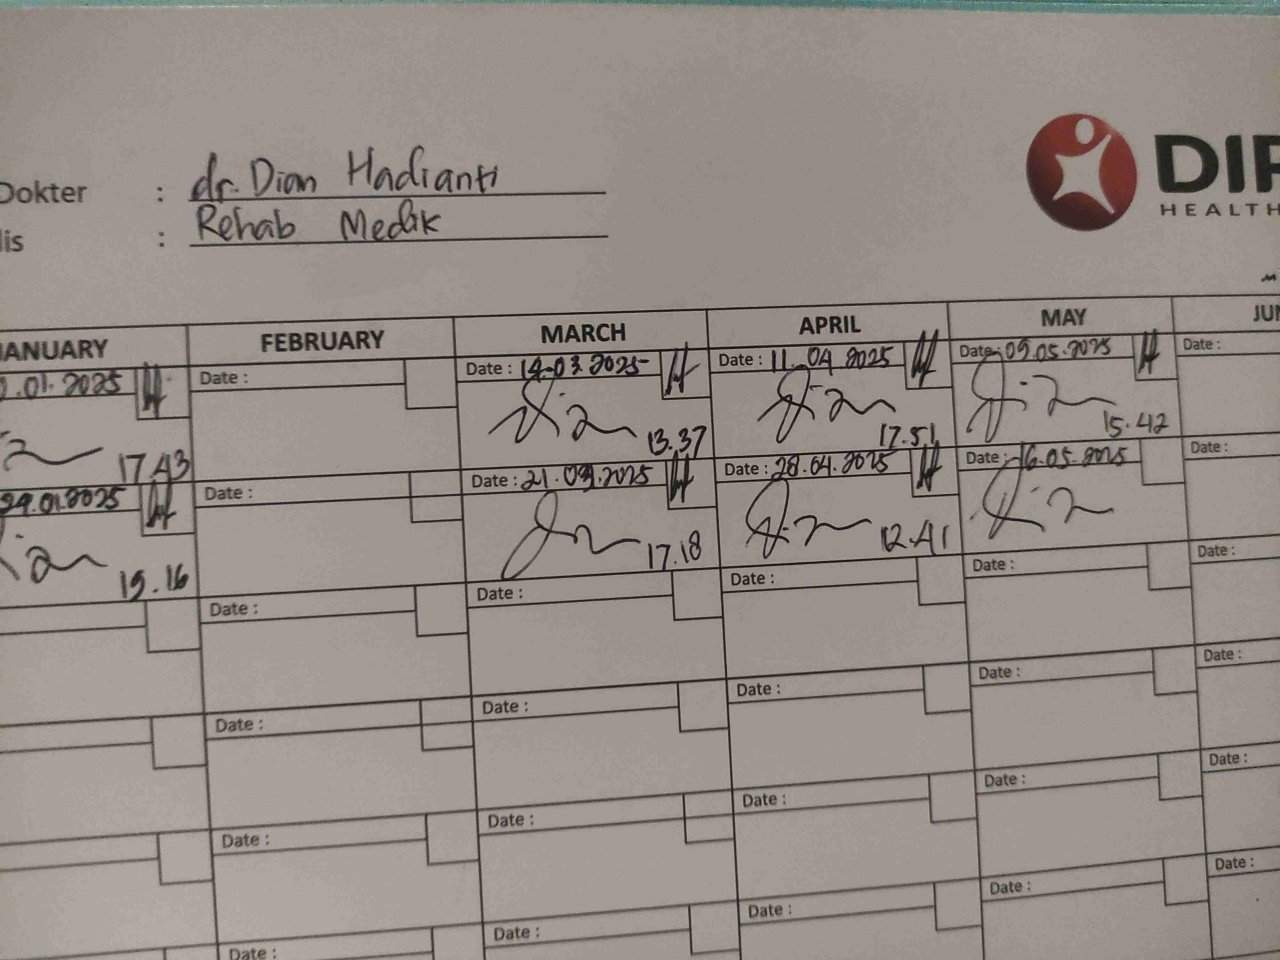 Dokter : dr. Dian Hadianti
lis : Rehab Medik
DIP
HEALTH
JANUARY FEBRUARY MARCH APRIL MAY JUN
.01.2025 Date : Date : 14-03.2025 Date : 11.04.2025 Date : 09.05.2025 Date :
17.43 13.37 17.51 15.42
29.01.2025 Date : Date : 21.03.2025 Date : 28.04.2025 Date : 16.05.2025 Date :
19.16 17.18 12.41
Date : Date : Date : Date : Date :
Date : Date : Date : Date : Date :
Date : Date : Date : Date : Date :
Date : Date : Date : Date : Date :